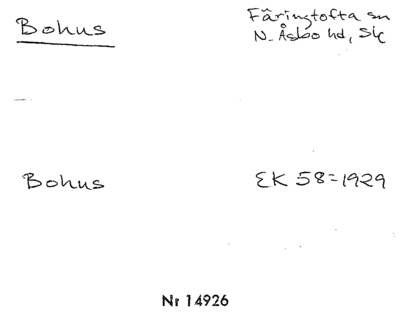 Bohus
Färingtofta sn
N. Åsbo hd, Sk
Bohus
EK 58=1929
Nr 14926